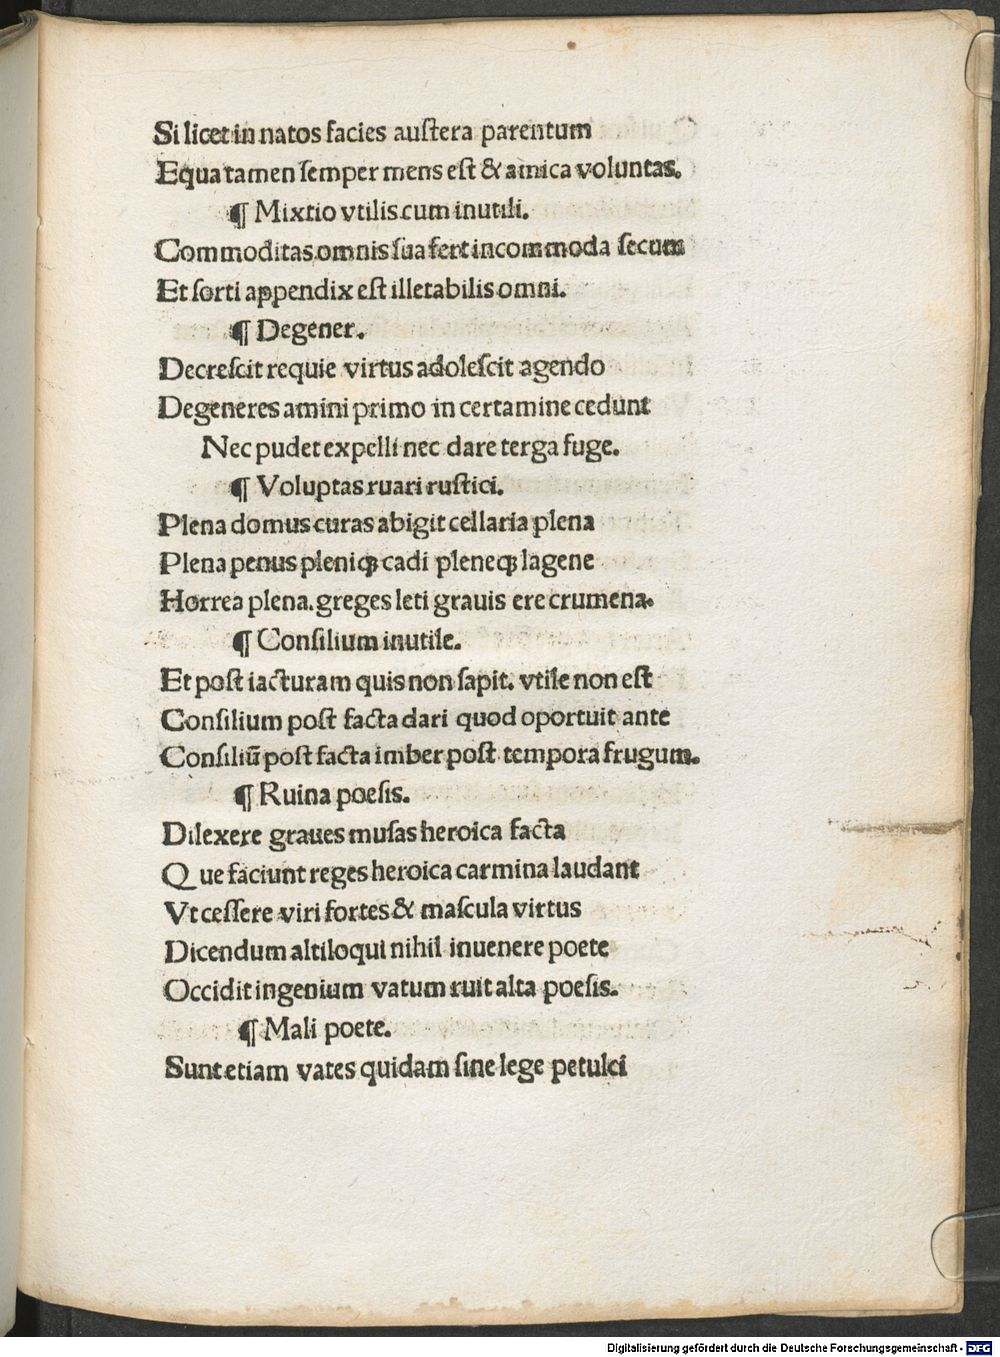 Si licet in natos facies auſtera parentum
Equa tamen ſemper mens eſt & amica voluntas.
¶ Mixtio vtilis cum inutili.
Commoditas omnis ſua fert incommoda ſecum
Et ſorti appendix eſt illetabilis omni.
¶ Degener.
Decreſcit requie virtus adoleſcit agendo
Degeneres amini primo in certamine cedunt
Nec pudet expelli nec dare terga fuge.
¶ Voluptas ruari ruſtici.
Plena domus curas abigit cellaria plena
Plena penus pleniqꝫ cadi pleneqꝫ lagene
Horrea plena. greges leti grauis ere crumena.
¶ Conſilium inutile.
Et poſt iacturam quis non ſapit. vtile non eſt
Conſilium poſt facta dari quod oportuit ante
Conſiliū poſt facta imber poſt tempora frugum.
¶ Ruina poeſis.
Dilexere graues muſas heroica facta
Que faciunt reges heroica carmina laudant
Vt ceſſere viri fortes & maſcula virtus
Dicendum altiloqui nihil inuenere poete
Occidit ingenium vatum ruit alta poeſis.
¶ Mali poete.
Sunt etiam vates quidam ſine lege petulci
Digitalisierung gefördert durch die Deutsche Forschungsgemeinschaft - DFG